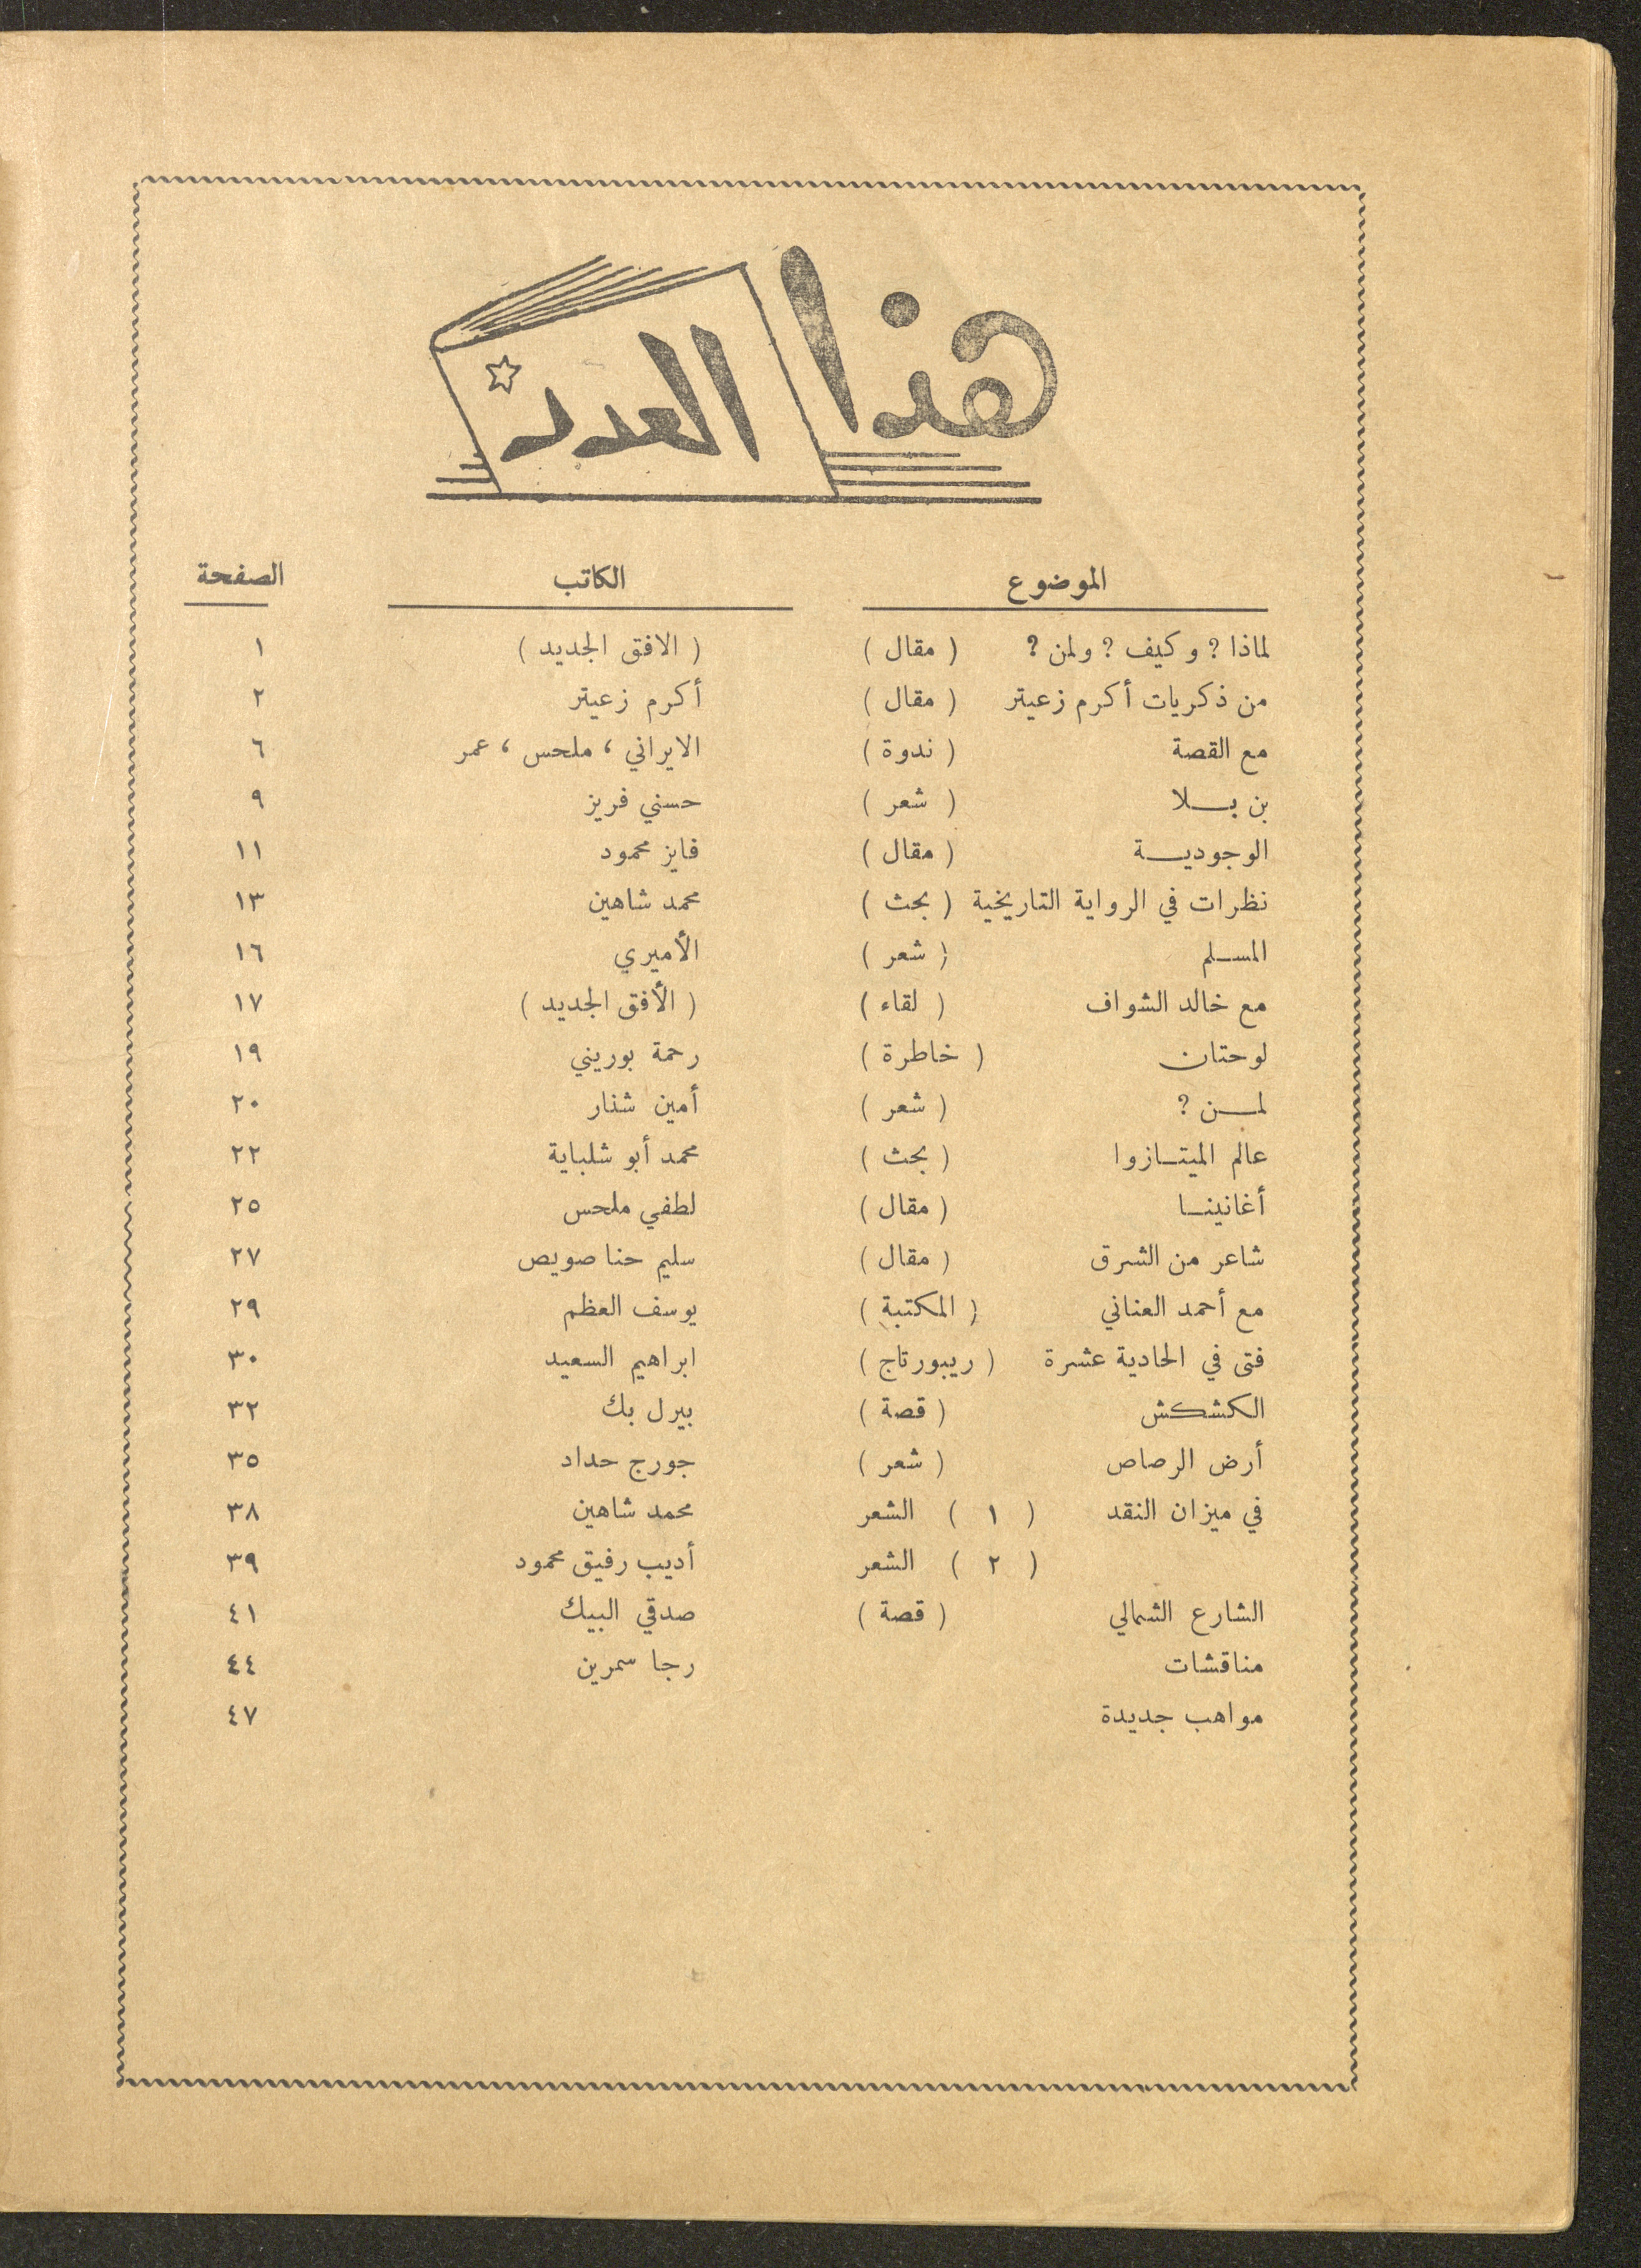 هذا العدد
الموضوع الكاتب الصفحة
لماذا ? وكيف ? ولمن ? ( مقال ) ( الافق الجديد ) ١
من ذكريات أكرم زعيتر ( مقال ) أكرم زعيتر ٢
مع القصة ( ندوة ) الايراني ، ملحس ، عمر ٦
بن بـــلا ( شعر ) حسني فريز ٩
الوجوديـــة ( مقال ) فايز محمود ١١
نظرات في الرواية التاريخية ( بحث ) محمد شاهين ١٣
المســلم ( شعر ) الأميري ١٦
مع خالد الشواف ( لقاء ) ( الأفق الجديد ) ١٧
لوحتان ( خاطرة ) رحمة بوريني ١٩
لمـــن ? ( شعر ) أمين شنار ٢٠
عالم الميتــازوا ( بحث ) محمد أبو شلباية ٢٢
أغانينــا ( مقال ) لطفي ملحس ٢٥
شاعر من الشرق ( مقال ) سليم حنا صويص ٢٧
مع أحمد العناني ( المكتبة ) يوسف العظم ٢٩
فتى في الحادية عشرة ( ريبورتاج ) ابراهيم السعيد ٣٠
الكشكش ( قصة ) بيرل بك ٣٢
أرض الرصاص ( شعر ) جورج حداد ٣٥
في ميزان النقد ( ١ ) الشعر محمد شاهين ٣٨
( ٢ ) الشعر أديب رفيق محمود ٣٩
الشارع الشمالي ( قصة ) صدقي البيك ٤١
مناقشات رجا سمرين ٤٤
مواهب جديدة ٤٧